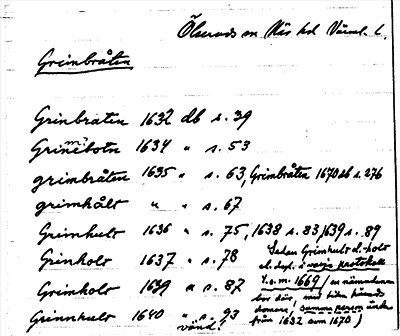 Ölseruds sn Näs hd Värml. l.
Grimbråten
Grinbraten 1632 db s. 39
Grinebotn 1634 " s. 53
m
grimbråten 1635 " s. 63, Grimbråten 1670 db s. 276
grimhålt " " s. 67
Grimhult 1636 " s. 75, 1638 s. 83, 1639 s. 89
Grinholt 1637 " s. 78
Grimholt 1639 " s. 87
Grinnhult 1640 " s. 93
vänd!
Sedan Grimhult el. holt
el. dyl. i varje protokoll
t.o.m. 1669 (en nämndeman
bor där, med tiden härads
domare, samma person ända
från 1632 som 1670)